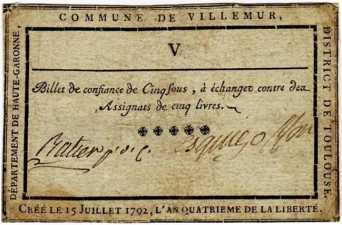 COMMUNE DE VILLEMUR,
DÉPARTEMENT DE HAUTE-GARONNE.
DISTRICT DE TOULOUSE.
V
Billet de confiance de Cinq sous, à échanger contre des
Assignats de cinq livres.
CRÉÉ LE 15 JUILLET 1792, L'AN QUATRIEME DE LA LIBERTÉ.